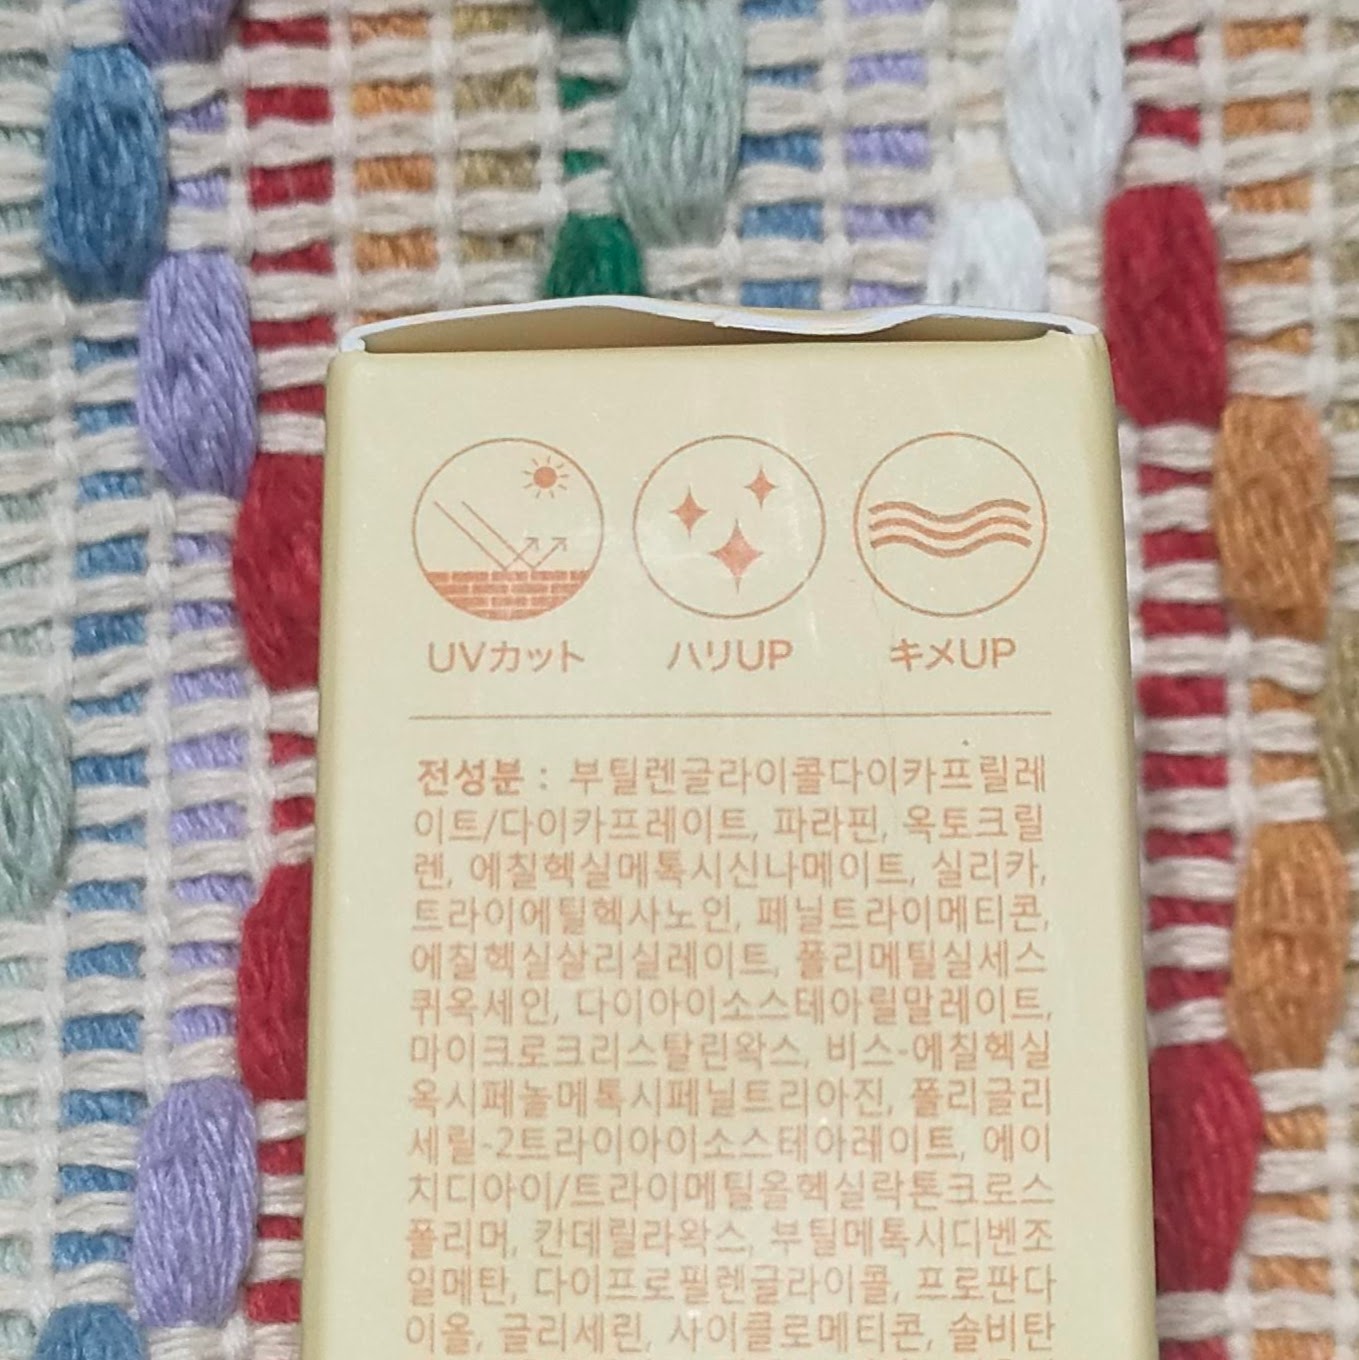 UVカット ハリUP キメUP
전성분 : 부틸렌글라이콜다이카프릴레
이트/다이카프레이트, 파라핀, 옥토크릴
렌, 에칠헥실메톡시신나메이트, 실리카,
트라이에틸헥사노인, 페닐트라이메티콘,
에칠헥실살리실레이트, 폴리메틸실세스
퀴옥세인, 다이아이소스테아릴말레이트,
마이크로크리스탈린왁스, 비스-에칠헥실
옥시페놀메톡시페닐트리아진, 폴리글리
세릴-2트라이아이소스테아레이트, 에이
치디아이/트라이메틸올헥실락톤크로스
폴리머, 칸데릴라왁스, 부틸메톡시디벤조
일메탄, 다이프로필렌글라이콜, 프로판다
이올, 글리세린, 사이클로메티콘, 솔비탄